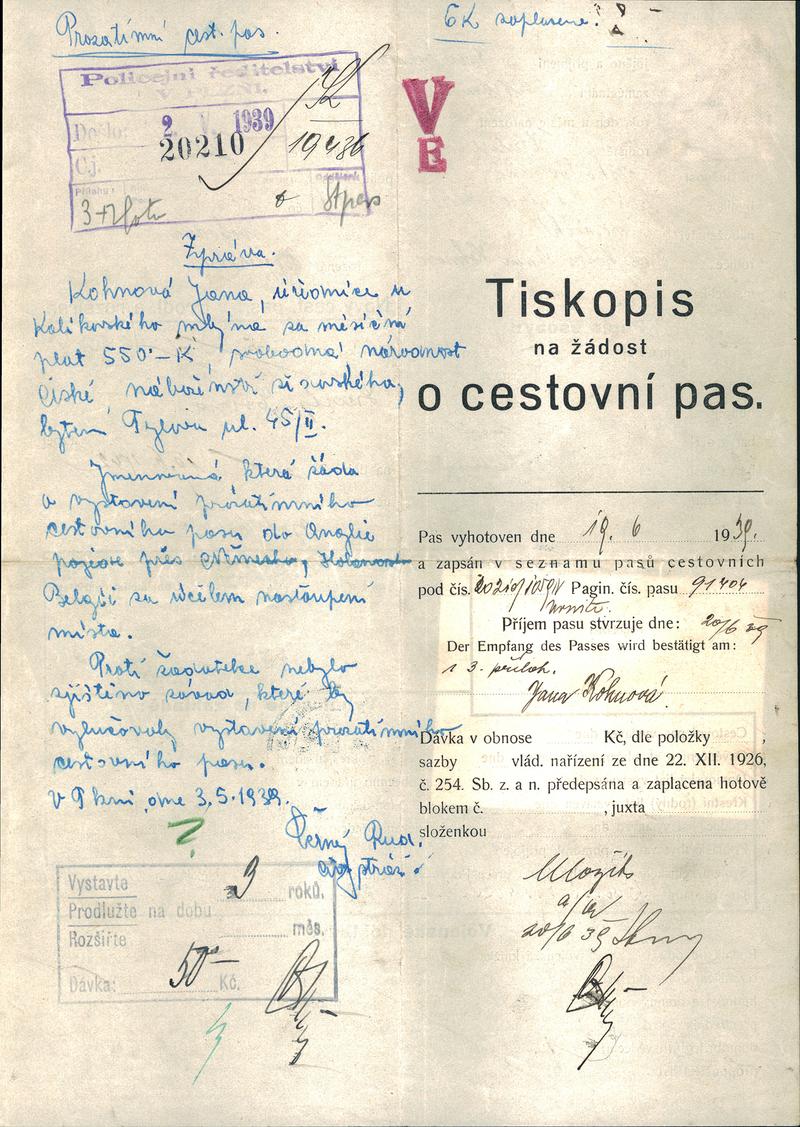 Prozatímní cest. pas.
6K zaplaceno.
Policejní ředitelství
V PLZNI.
Došlo: 2. V. 1939
20210
Č.j.
19436
Přílohy:
3+
Zpráva.
Kohnová Jana, úřednice u
Kalikovského mlýna sa měsíční
plat 550·-K, svobodná národnost
české, náboženství židovského,
bytem Tylova ul. 45/II.
Jmenovaná, která žádá
o vystavení prozatímního
cestovního pasu do Anglie
pojede přes Německo, Holansko
Belgii za účelem nastoupení
místa.
Proti žadatelce nebylo
zjištěno závad, které by
vylučovaly vystavení prozatímního
cestovního pasu.
V Plzni, dne 3.5.1939.
Černý Rud.
Vystavte
Prodlužte na dobu
Rozšiřte
roků.
měs.
Dávka: 50 Kč.
V
E
Tiskopis
na žádost
o cestovní pas.
Pas vyhotoven dne 19. 6 1939.
a zapsán v seznamu pasů cestovních
pod čís. Pagin. čís. pasu 91404
Příjem pasu stvrzuje dne: 20/6 39
Der Empfang des Passes wird bestätigt am:
s 3. příloh.
Jana Kohnová.
Dávka v obnose Kč, dle položky ,
sazby vlád. nařízení ze dne 22. XII. 1926,
č. 254. Sb. z. a n. předepsána a zaplacena hotově
blokem č. , juxta
složenkou
20/6 39